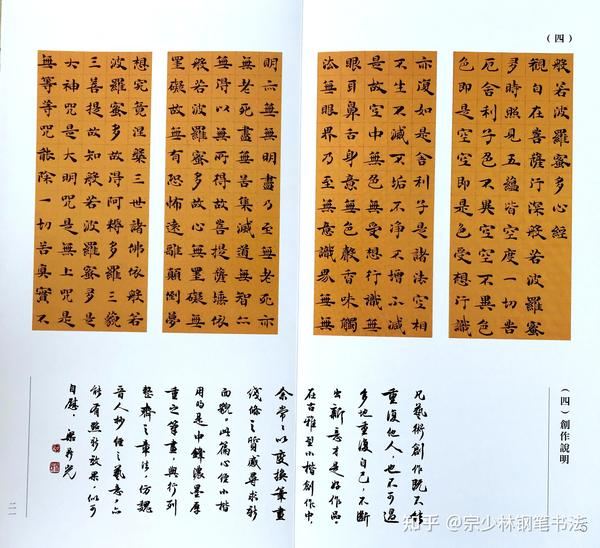 (四)
般若波羅蜜多心經
觀自在菩薩行深般若波羅蜜
多時照見五蘊皆空度一切苦
厄舍利子色不異空空不異色
色即是空空即是色受想行識
亦復如是舍利子是諸法空相
不生不滅不垢不淨不增不減
是故空中無色無受想行識無
眼耳鼻舌身意無色聲香味觸
法無眼界乃至無意識界無無
明亦無無明盡乃至無老死亦
無老死盡無苦集滅道無智亦
無得以無所得故菩提薩埵依
般若波羅蜜多故心無罣礙無
罣礙故無有恐怖遠離顛倒夢
想究竟涅槃三世諸佛依般若
波羅蜜多故得阿耨多羅三藐
三菩提故知般若波羅蜜多是
大神咒是大明咒是無上咒是
無等等咒能除一切苦真實不
(四)創作說明
凡藝術創作既不能
重復他人,也不可過
多地重復自己,不斷
出新意才是好作品。
在古雅型小楷創作中,
余常常以變換筆畫
綫條之質感尋求新
面貌。此篇心經小楷
用的是中鋒濃墨厚
重之筆畫,與行列
整齊之章法,仿魏
晉人抄經之氣意,亦
能有點新效果,似可
自慰。
二一
知乎 @宗少林钢笔书法